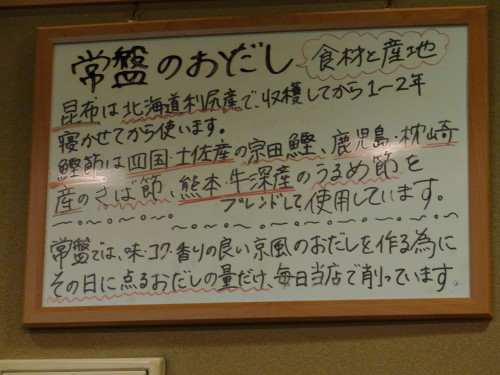 常盤のおだし 食材と産地
昆布は北海道利尻産で、収穫してから1~2年
寝かせてから使います。
鰹節は四国・土佐産の宗田鰹、鹿児島・枕崎
産のさば節、熊本・牛深産のうるめ節を
ブレンドして使用しています。
常盤では、味・コク・香りの良い京風のおだしを作る為に
その日に点るおだしの量だけ、毎日当店で削っています。